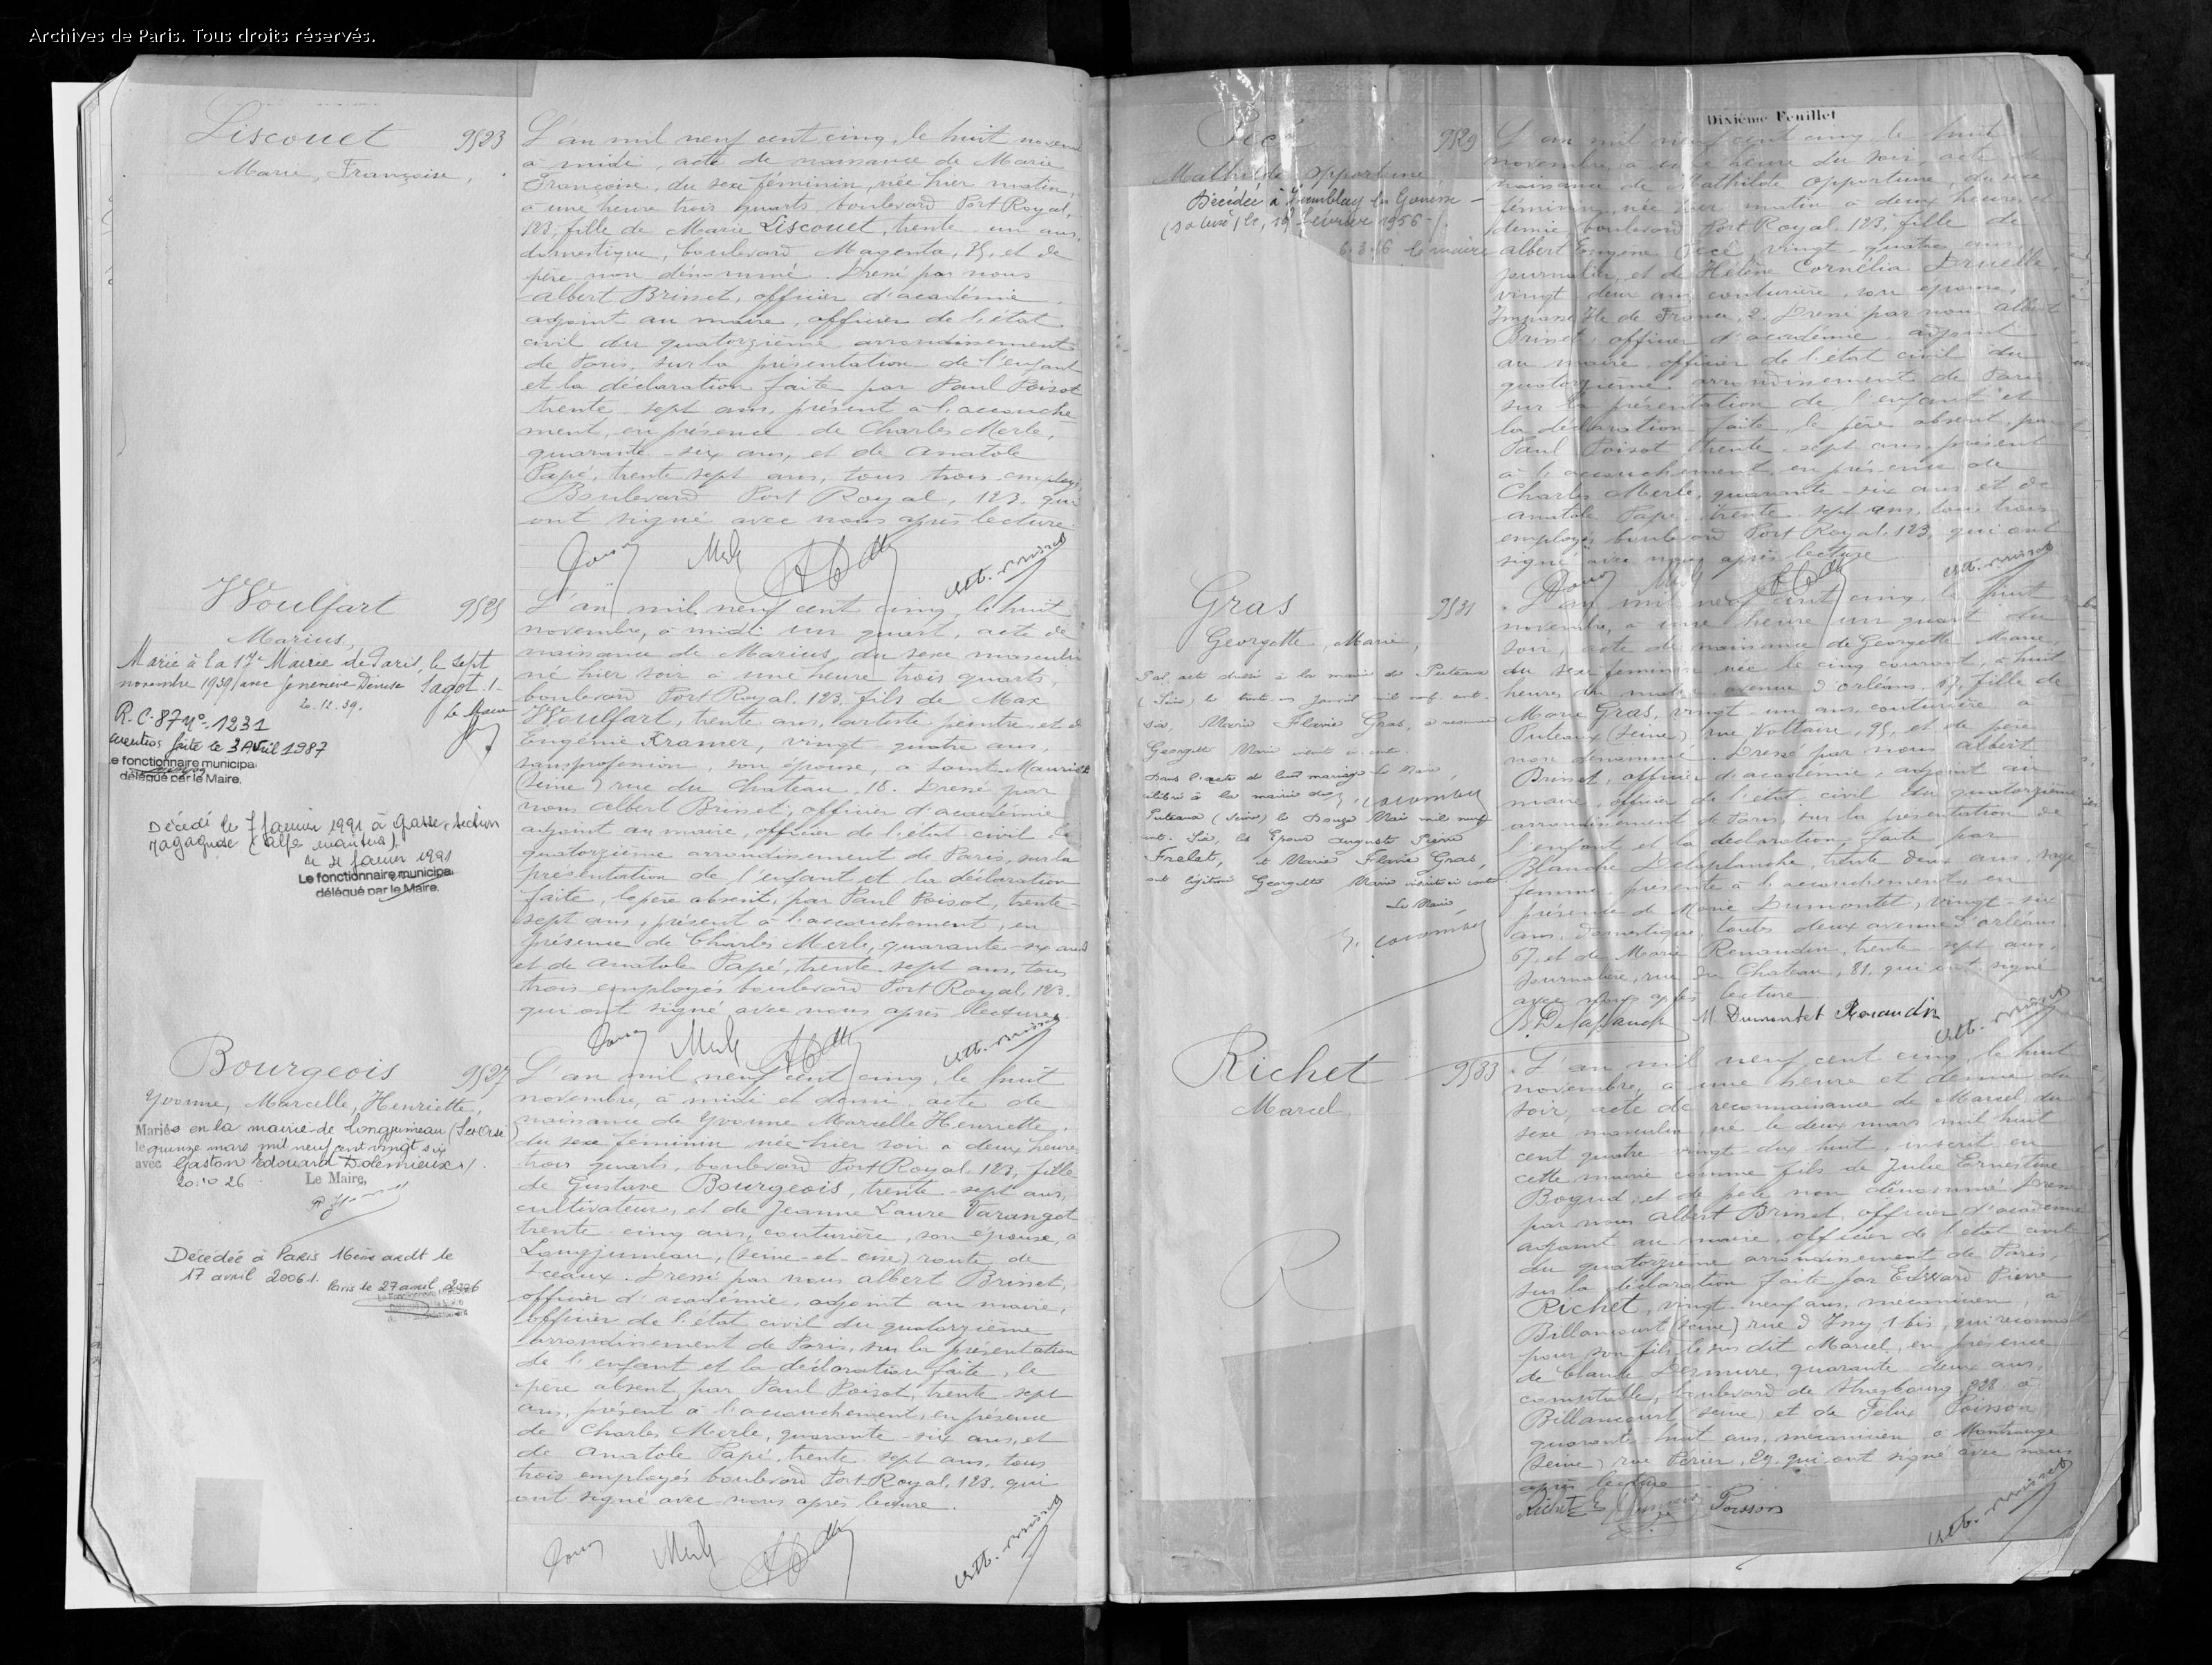 Archives de Paris. Tous droits réservés.
Liscouet
9523
Marie, Françoise,
L'an mil neuf cent cinq, le huit novembre
à midi, acte de naissance de Marie
Françoise, du sexe féminin, née hier matin,
à une heure trois quarts, boulevard Port Royal,
123, fille de Marie Liscouet, trente un ans,
domestique, boulevard Magenta, et de
père non dénommé. Dressé par nous
Albert Brinet, officier d'académie
adjoint au maire, officier de l'état
civil du quatorzième arrondissement
de Paris, sur la présentation de l'enfant
et la déclaration faite par Paul Poisot
trente-sept ans, présent à l'accouche
ment, en présence de Charles Merle,
quarante-six ans, et de Anatole
Papé, trente sept ans, tous trois employés
Boulevard Port Royal, 123, qui
ont signé avec nous après lecture
Woulfart
9525
Marius,
Marié à la 17e Mairie de Paris, le sept
novembre 1939 avec Geneviève Denise Sagot.
20.12.39.
Le Maire
R.C. 87 No 1231
mention faite le 3 Avril 1987
Le fonctionnaire municipal
délégué par le Maire.
Décédé le 7 janvier 1991 à Grasse, section
Magagnosc (Alpes maritimes)
janvier 1991
Le fonctionnaire municipal
délégué par le Maire.
L'an mil neuf cent cinq, le huit
novembre, à midi un quart, acte de
naissance de Marius, du sexe masculin
né hier soir à une heure trois quarts,
boulevard Port Royal, 123, fils de Max
Woulfart, trente ans, artiste peintre et de
Eugénie Kramer, vingt quatre ans,
sans profession, son épouse, à Saint-Maurice
(Seine) rue du Chateau, 18. Dressé par
nous Albert Brinet, officier d'académie
adjoint au maire, officier de l'état civil du
quatorzième arrondissement de Paris, sur la
présentation de l'enfant et la déclaration
faite, le père absent, par Paul Poisot, trente-
sept ans, présent à l'accouchement, en
présence de Charles Merle, quarante-six ans
et de Anatole Papé, trente-sept ans, tous
trois employés boulevard Port Royal, 123,
qui ont signé avec nous après lecture.
Bourgeois
9527
Yvonne, Marcelle, Henriette,
Mariée en la mairie de Longjumeau (S-et-Oise)
le quinze mars mil neuf cent vingt six
avec Gaston Edouard Dolemieux
20.10 26
Le Maire,
Décédée à Paris 16ème ardt le
17 avril 2006.
Paris le 27 avril 2006
L'an mil neuf cent cinq, le huit
novembre, à midi et demi, acte de
naissance de Yvonne Marcelle Henriette,
du sexe féminin née hier soir à deux heures
trois quarts, boulevard Port Royal 123, fille
de Gustave Bourgeois, trente-sept ans,
cultivateur, et de Jeanne Laure Varangot
trente-cinq ans, couturière, son épouse, à
Longjumeau, (Seine-et-Oise) route de
Sceaux. Dressé par nous Albert Brinet,
officier d'académie, adjoint au maire,
officier de l'état civil du quatorzième
arrondissement de Paris, sur la présentation
de l'enfant et la déclaration faite, le
père absent, par Paul Poisot, trente-sept
ans, présent à l'accouchement, en présence
de Charles Merle, quarante-six ans, et
de Anatole Papé, trente-sept ans, tous
trois employés boulevard Port Royal, 123, qui
ont signé avec nous après lecture.
Dixième Feuillet
9529
Mathilde Opportune
Décédée à Tremblay les Gonesse
février 1956
le maire
L'an mil neuf cent cinq, le huit
novembre, à une heure du soir, acte de
naissance de Mathilde Opportune, du sexe
féminin, née hier matin à deux heures et
demie boulevard Port Royal, 123, fille de
Albert Eugène vingt-quatre ans
journalier, et de Hélène Cornélia Druelle,
vingt deux ans couturière, son épouse,
Impasse Ile de France, 2. Dressé par nous Albert
Brinet, officier d'académie adjoint
au maire, officier de l'état civil du
quatorzième arrondissement de Paris
sur la présentation de l'enfant et
la déclaration faite, le père absent, par
Paul Poisot trente-sept ans, présent
à l'accouchement, en présence de
Charles Merle, quarante-six ans et de
Anatole Papé, trente-sept ans, tous trois
employés boulevard Port Royal, 123, qui ont
signé avec nous après lecture
Gras
9531
Georgette, Marie,
Par acte dressé à la mairie de Puteaux
(Seine) le trente un Janvier mil neuf cent
six, Marie Flavie Gras, a reconnu
Georgette Marie
Dans l'acte de leur mariage
célébré à la mairie de
Puteaux (Seine) le douze Mai mil neuf
cent six, les Epoux Auguste Pierre
Frelet, et Marie Flavie Gras,
ont légitimé Georgette Marie
Le Maire,
L'an mil neuf cent cinq, le huit
novembre, à une heure un quart du
soir, acte de naissance de Georgette Marie,
du sexe féminin née le cinq courant, à huit
heures du matin, avenue d'Orléans, 67, fille de
Marie Gras, vingt-un ans, couturière à
Puteaux (Seine) rue Voltaire, 95, et de père
non dénommé. Dressé par nous Albert
Brinet, officier d'académie, adjoint au
maire, officier de l'état civil du quatorzième
arrondissement de Paris, sur la présentation de
l'enfant et la déclaration faite par
Blanche Delaplanche, trente deux ans, sage
femme, présente à l'accouchement, en
présence de Marie Dumontet, vingt-six
ans, domestique, toutes deux avenue d'Orléans
67, et de Marie Renaudin, trente-sept ans,
journalière, rue du Chateau, 81, qui ont signé
avec nous après lecture
M. Dumontet Renaudin
Richet
9533
Marcel
R
L'an mil neuf cent cinq, le huit
novembre, à une heure et demie du
soir, acte de reconnaissance de Marcel, du
sexe masculin, né le deux mars mil huit
cent quatre-vingt-dix huit, inscrit en
cette mairie comme fils de Julie Ernestine
et de père non dénommé. Dressé
par nous Albert Brinet, officier d'académie
adjoint au maire, officier de l'état civil
du quatorzième arrondissement de Paris,
sur la déclaration faite par Edouard Pierre
Richet, vingt-neuf ans, mécanicien, à
Billancourt (Seine) rue d'Issy 1 bis, qui reconnaît
pour son fils le sus dit Marcel, en présence
de Claude quarante-deux ans,
comptable, boulevard de Strasbourg, à
Billancourt (Seine) et de Félix Poisson
quarante-huit ans, mécanicien à Montrouge
(Seine) rue Périer, 29, qui ont signé avec nous
après lecture
Richet E Poisson